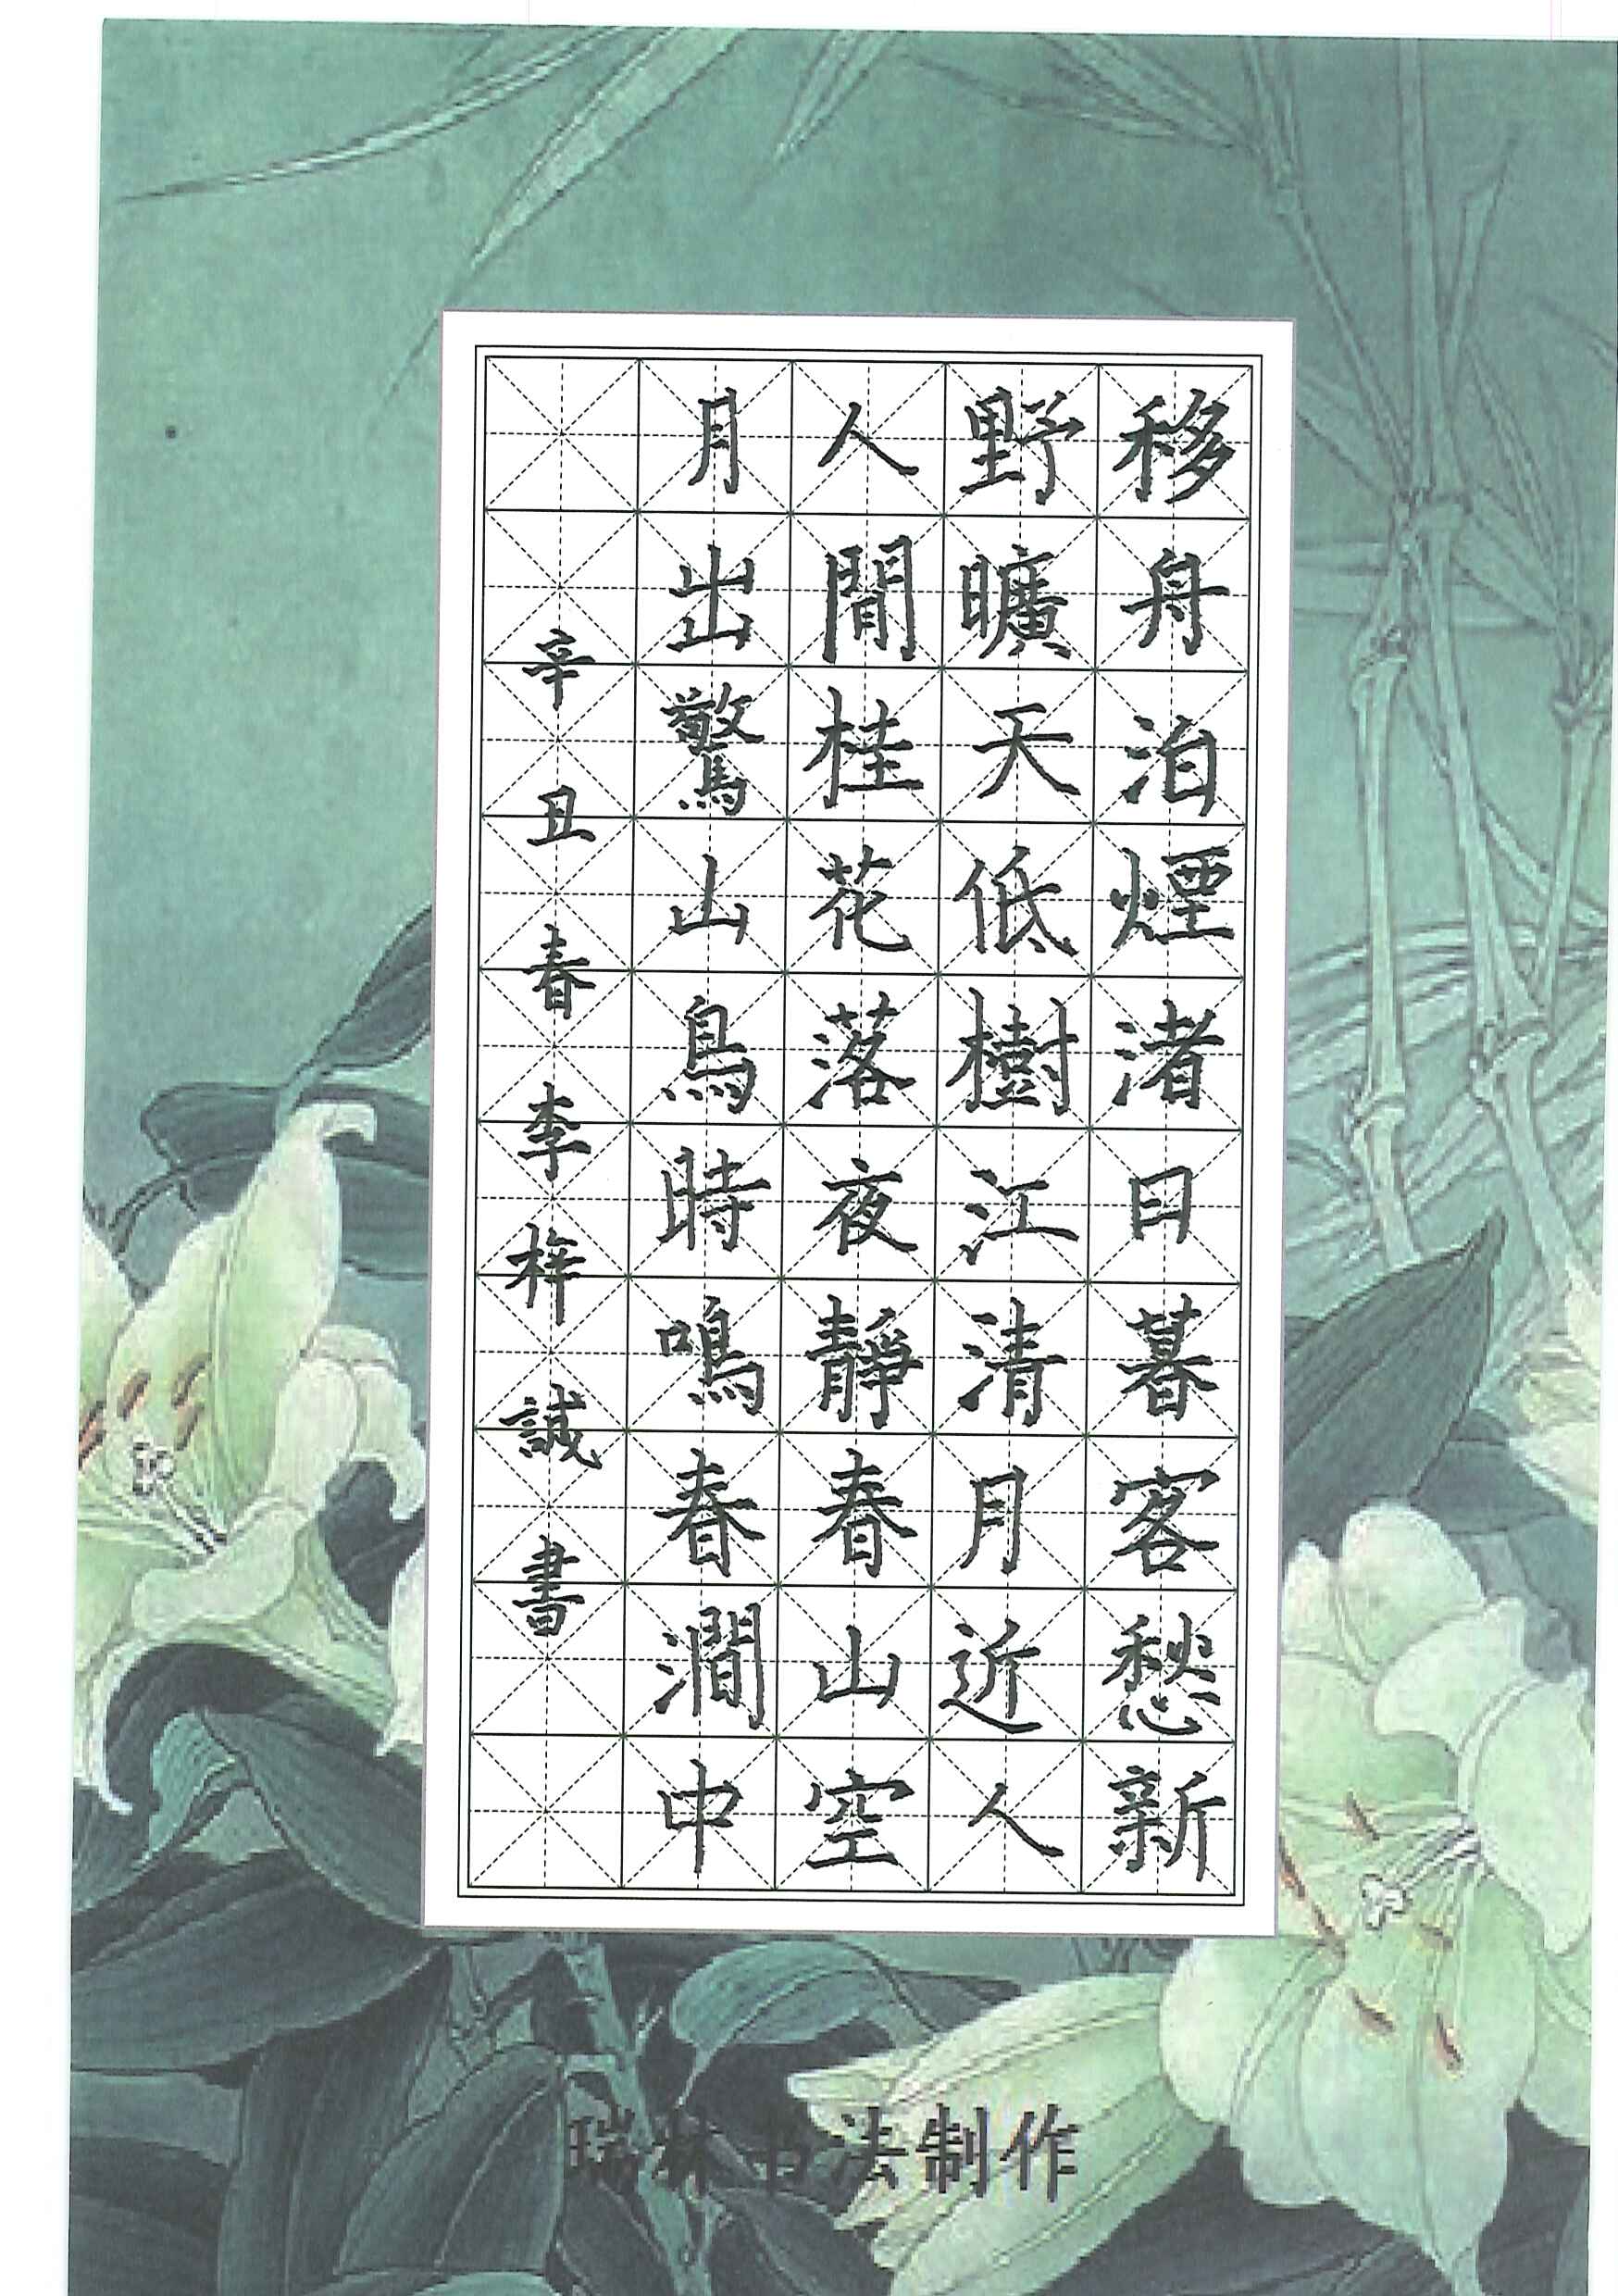 移舟泊煙渚日暮客愁新
野曠天低樹江清月近人
人閒桂花落夜靜春山空
月出驚山鳥時鳴春澗中
辛丑春李梓誠書
瑞林书法制作